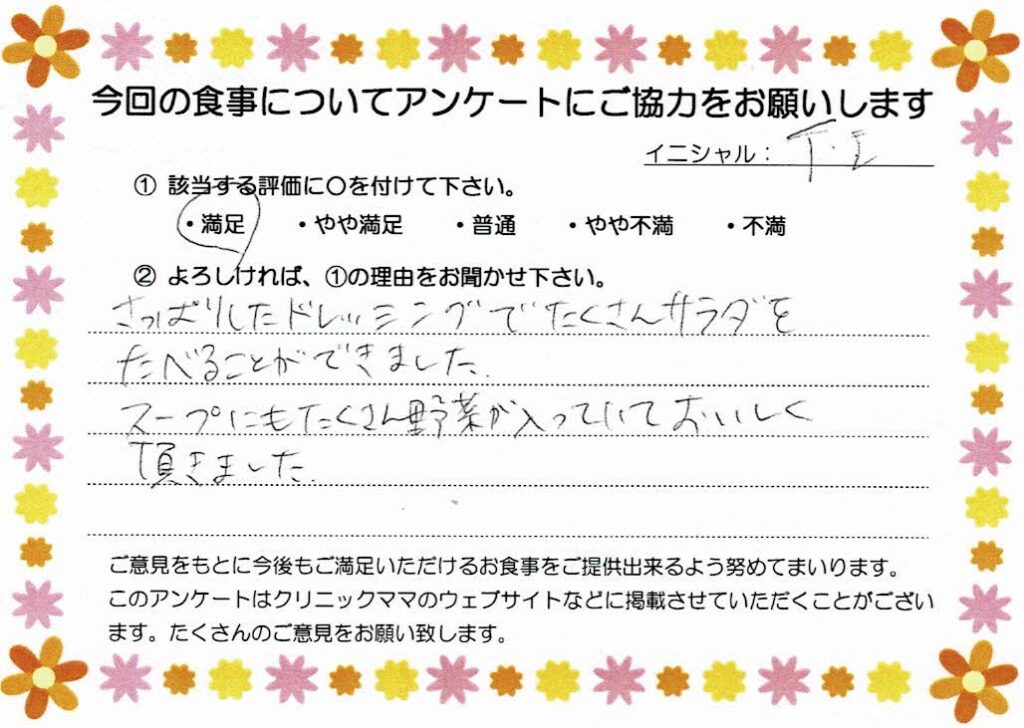 今回の食事についてアンケートにご協力をお願いします
イニシャル： T・I
① 該当する評価に○を付けて下さい。
・満足 ・やや満足 ・普通 ・やや不満 ・不満
② よろしければ、①の理由をお聞かせ下さい。
さっぱりしたドレッシングでたくさんサラダを
たべることができました。
スープにもたくさん野菜が入っていておいしく
頂きました。
ご意見をもとに今後もご満足いただけるお食事をご提供出来るよう努めてまいります。
このアンケートはクリニックママのウェブサイトなどに掲載させていただくことがござい
ます。たくさんのご意見をお願い致します。